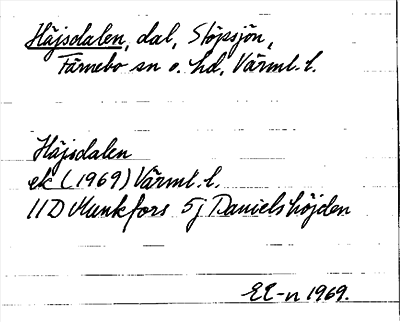 Häjsdalen, dal, Stöpsjön,
Färnebo sn o. hd, Värml. l.
Häjsdalen
ek (1969) Värml. l.
11D Munkfors 5j Danielshöjden
EE-n 1969.